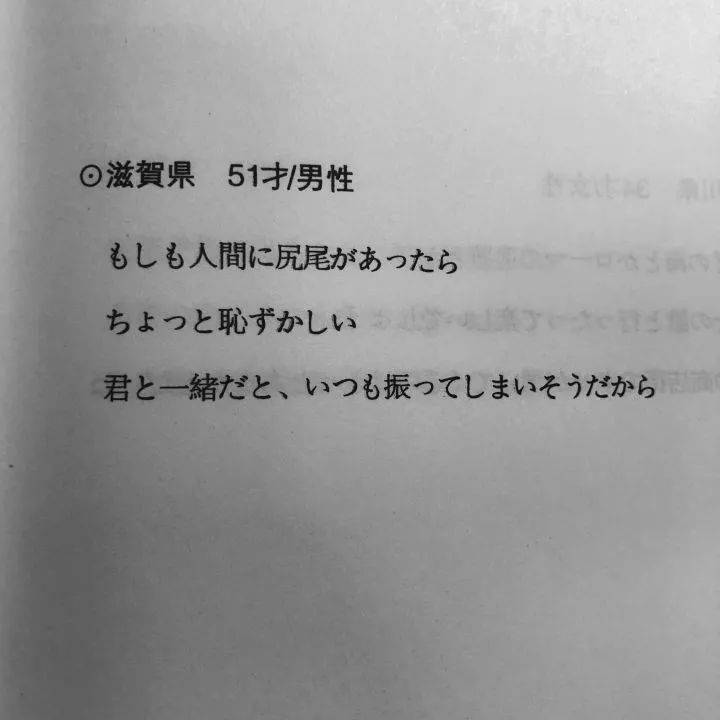 ⊙滋賀県 51才/男性
もしも人間に尻尾があったら
ちょっと恥ずかしい
君と一緒だと、いつも振ってしまいそうだから